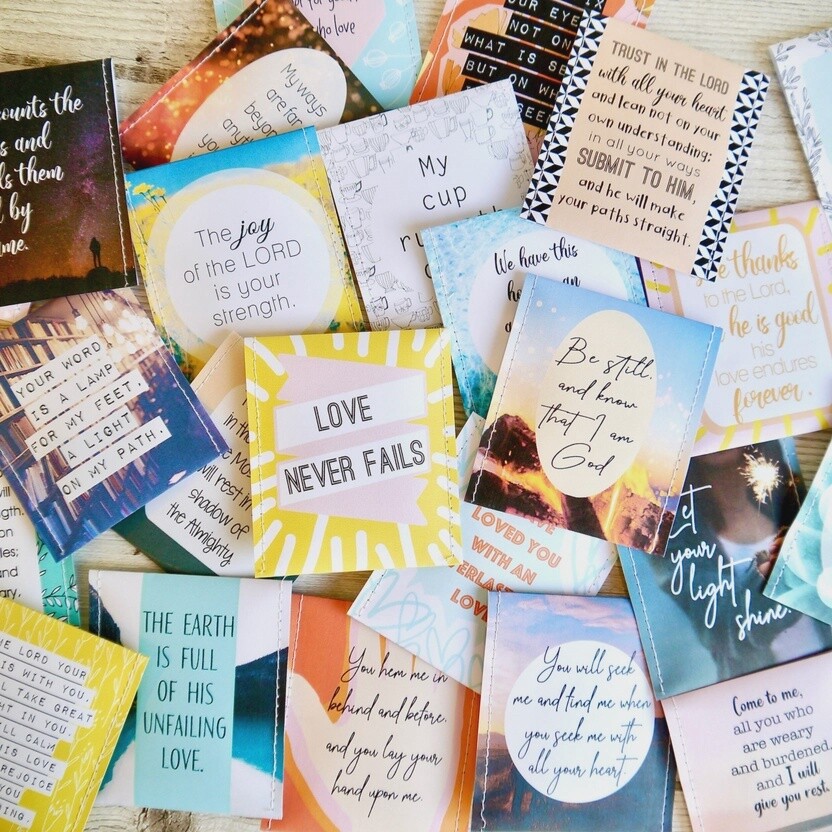 for you
who love
OUR EYE
NOT ON
WHAT IS SE
BUT ON WH
SEE
My ways
are far
beyond
TRUST IN THE LORD
with all your heart
and lean not on your
own understanding;
in all your ways
SUBMIT TO HIM,
and he will make
your paths straight.
counts the
s and
ls them
by
me.
My
cup
The joy
of the LORD
is your
strength.
We have this
an
thanks
to the Lord,
he is good
his
love endures
forever.
YOUR WORD
IS A LAMP
FOR MY FEET,
A LIGHT
ON MY PATH.
in the
will rest in
shadow of
the Almighty
LOVE
NEVER FAILS
Be still,
and know
that I am
God
LOVED YOU
WITH AN
ERLAS
LOVE
Let
your
light
shine.
will
ngth.
on
les;
and
ary.
E LORD YOUR
IS WITH YOU,
LL TAKE GREAT
HT IN YOU.
LL CALM
IS LOVE
REJOICE
YOU
ING.
THE EARTH
IS FULL
OF HIS
UNFAILING
LOVE.
You hem me in
behind and before,
and you lay your
hand upon me.
You will seek
me and find me when
you seek me with
all your heart.
Come to me,
all you who
are weary
and burdened,
and I will
give you rest.